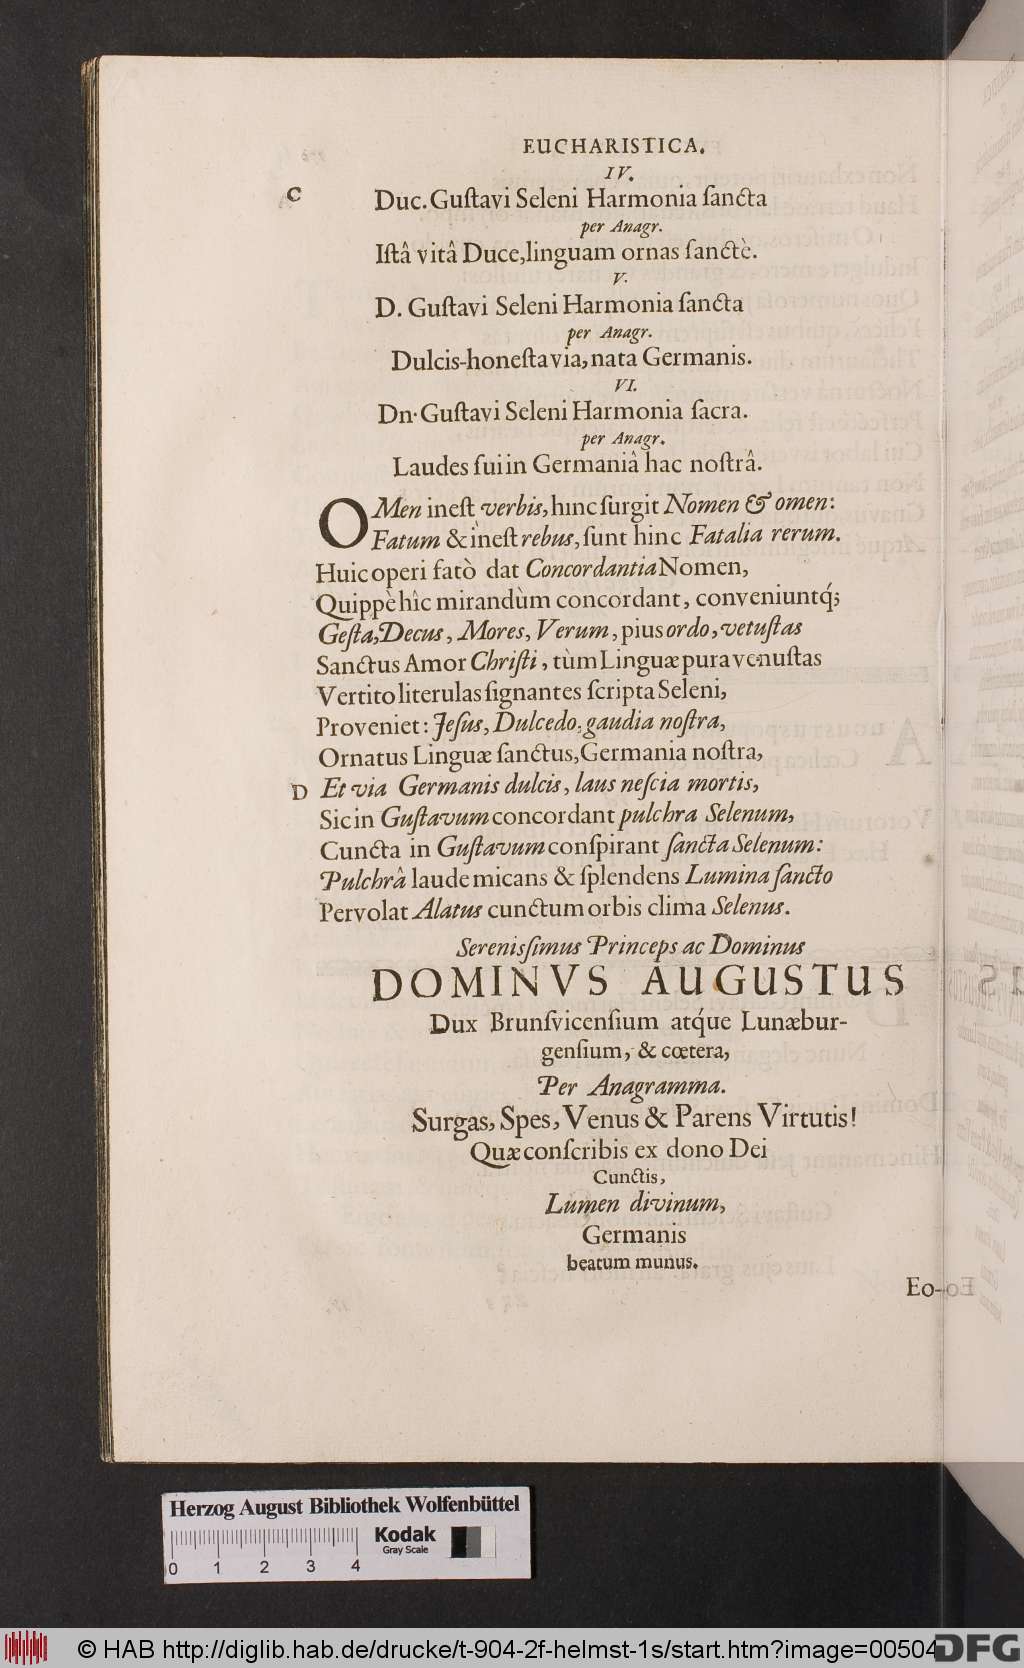 EUCHARISTICA.
IV.
C
Duc. Guſtavi Seleni Harmonia ſancta
per Anagr.
Iſtâ vitâ Duce, linguam ornas ſanctè.
V.
D. Guſtavi Seleni Harmonia ſancta
per Anagr.
Dulcis-honeſta via, nata Germanis.
VI.
Dn. Guſtavi Seleni Harmonia ſacra.
per Anagr.
Laudes ſui in Germaniâ hac noſtrâ.
OMen ineſt verbis, hinc ſurgit Nomen & omen:
Fatum & ineſt rebus, ſunt hinc Fatalia rerum.
Huic operi fatò dat Concordantia Nomen,
Quippè hîc mirandùm concordant, conveniuntq́;
Geſta, Decus, Mores, Verum, pius ordo, vetuſtas
Sanctus Amor Chriſti, tùm Linguæ pura venuſtas
Vertito literulas ſignantes ſcripta Seleni,
Proveniet: Jeſus, Dulcedo, gaudia noſtra,
Ornatus Linguæ ſanctus, Germania noſtra,
D Et via Germanis dulcis, laus neſcia mortis,
Sic in Guſtavum concordant pulchra Selenum,
Cuncta in Guſtavum conſpirant ſancta Selenum:
Pulchrâ laude micans & ſplendens Lumina ſancto
Pervolat Alatus cunctum orbis clima Selenus.
Sereniſſimus Princeps ac Dominus
DOMINVS AUGUSTUS
Dux Brunſvicenſium atq́ue Lunæbur-
genſium, & cœtera,
Per Anagramma.
Surgas, Spes, Venus & Parens Virtutis!
Quæ conſcribis ex dono Dei
Cunctis,
Lumen divinum,
Germanis
beatum munus.
Eo-
Herzog August Bibliothek Wolfenbüttel
0 1 2 3 4
Kodak
Gray Scale
© HAB http://diglib.hab.de/drucke/t-904-2f-helmst-1s/start.htm?image=00504
DFG